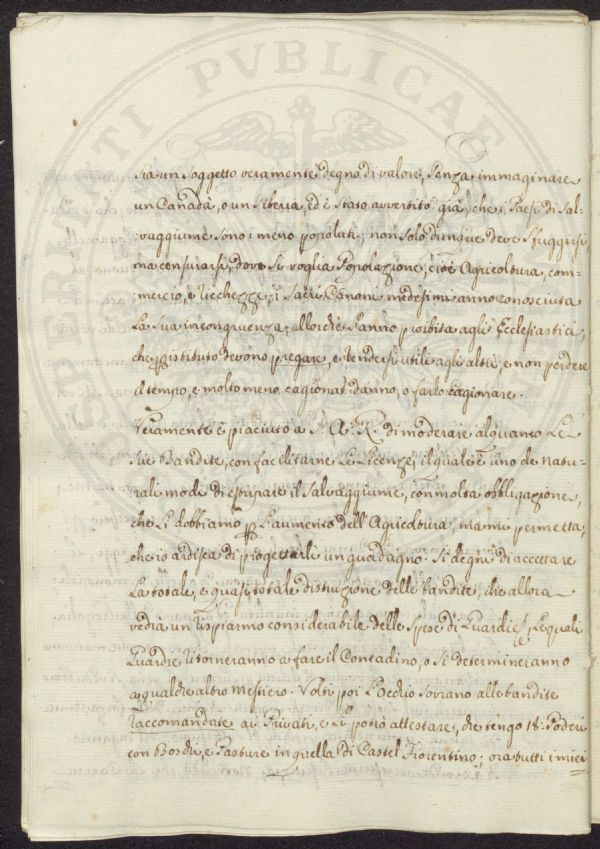 sia un soggetto veramente degno di valore, senza immaginare
un Canadà, o un Siberia, ed è stato avvertito già, che i Paesi di Sal-
vaggiume sono i meno popolati; non solo dunque deve sfuggirsi,
ma censurarsi, dove si voglia Popolazione, cioè Agricoltura, com-
mercio, e ricchezze; i Sacri Canoni medesimi anno conosciuta
la sua incongruenza, allorchè l'anno proibita agli Ecclesiastici,
che p istituto devono pregare, e rendersi utili agli altri, e non perdere
il tempo, e molto meno cagionar danno, o farlo cagionare.
Veramente è piaciuto a S. A. R. di moderare alquanto le
sue Bandite, con facilitarne le Licenze, il quale è uno de natu-
rali modi di estirpare il salvaggiume, con molta obbligazione,
che li dobbiamo p l'aumento dell'Agricoltura; ma mi permetta,
che io ardisca di progettarli un guadagno. Si degni di accettare
la totale, e quasi totale distruzione delle bandite, che allora
vedrà un risparmio considerabile delle spese di Guardie, le quali
Guardie ritorneranno a fare il Contadino, o si determineranno
a qualche altro mestiero. Volti poi l'occhio sovrano alle bandite
raccomandate ai Privati, e li potrò attestare, che tengo 18. Poderi
con Boschi, e Pasture in quella di Castel Fiorentino; ora tutti i miei